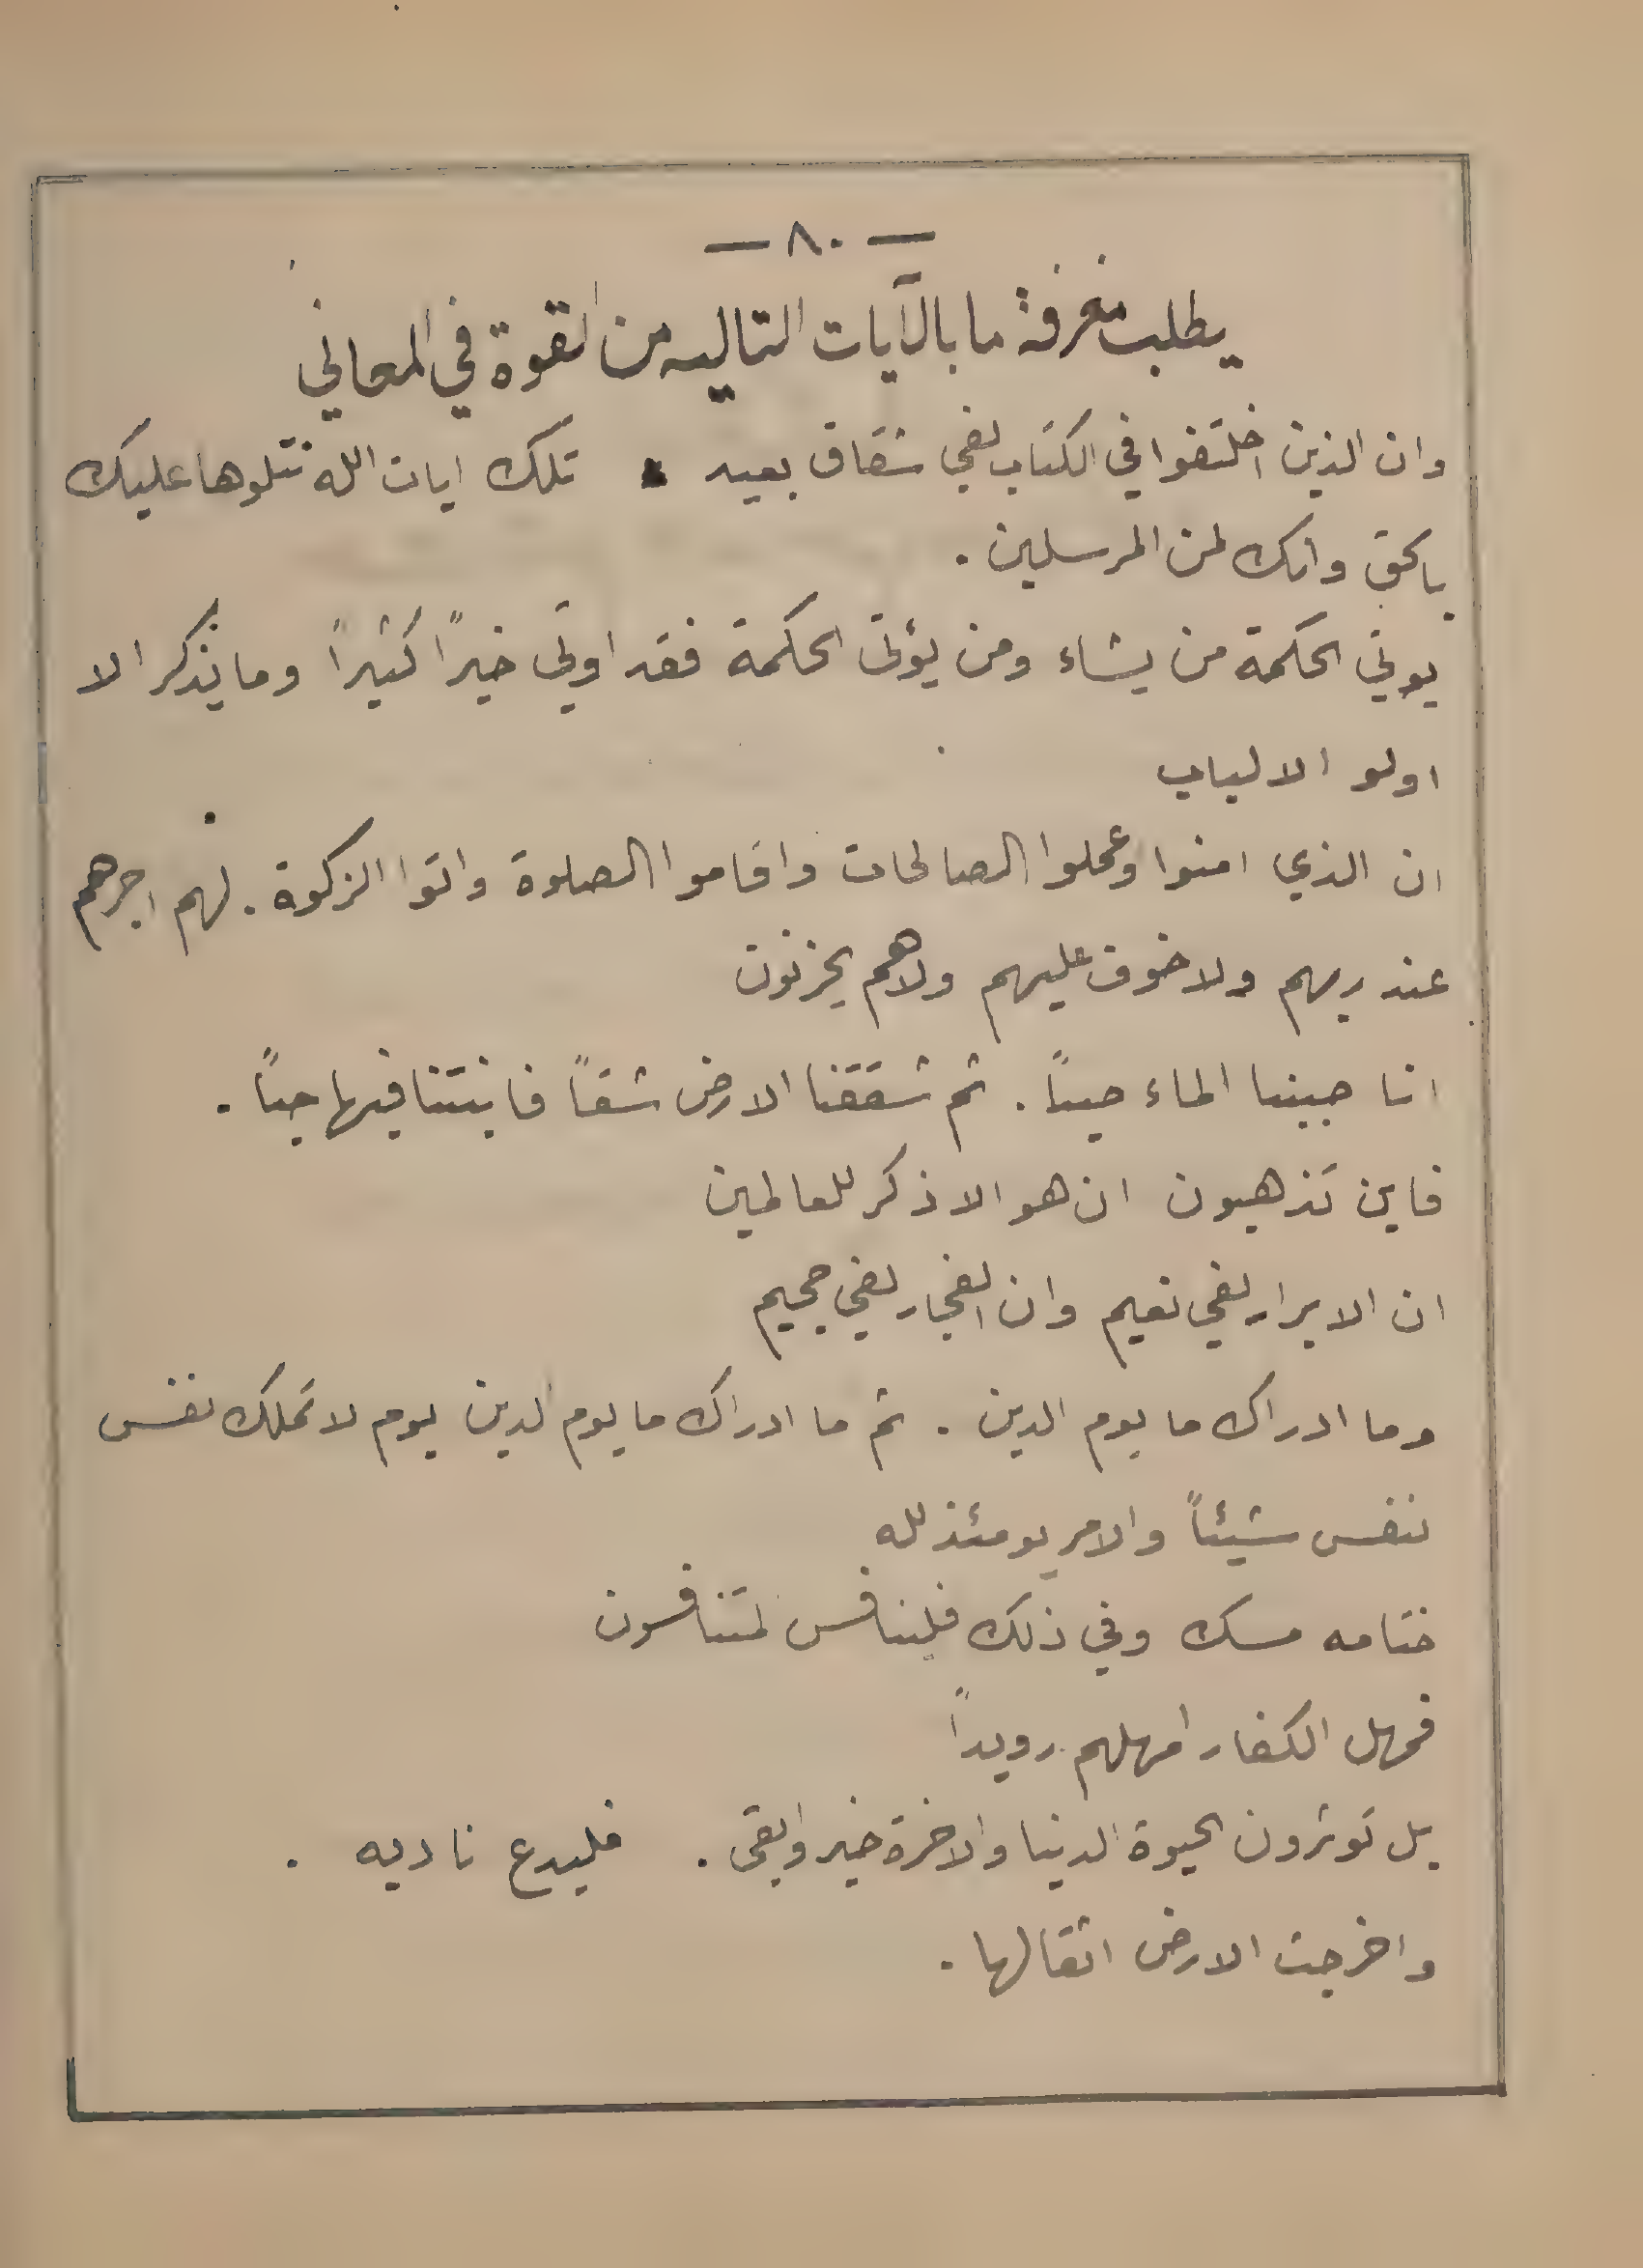 — ٨٠ —
يطلب معرفة ما بالآيات التاليه من القوة في المعاني
وان الذين اختلفوا في الكتاب لفي شقاق بعيد . تلك ايات الله نتلوها عليك
بالحق وانك لمن المرسلين .
يوتي الحكمة من يشاء ومن يؤتى الحكمة فقد اوتي خيراً كثيراً وما يذكر الا
اولو الالباب
ان الذي امنوا وعملوا الصالحات واقاموا الصلوة واتوا الزكوة . لهم اجرهم
عند ربهم ولا خوف عليهم ولا هم يحزنون
انا صببنا الماء صبباً . ثم شققنا الارض شقاً فانبتنا فيها حباً .
فاين تذهبون ان هو الا ذكر للعالمين
ان الابرار لفي نعيم وان الفجار لفي جحيم
وما ادراك ما يوم الدين . ثم ما ادراك ما يوم الدين يوم لا تملك نفس
لنفس شيئاً والامر يومئذ لله
ختامه مسك وفي ذلك فليتنافس المتنافسون
فمهل الكفار امهلهم رويداً
بل توثرون الحيوة الدنيا والاخرة خير وابقى . فليدع ناديه .
واخرجت الارض اثقالها .